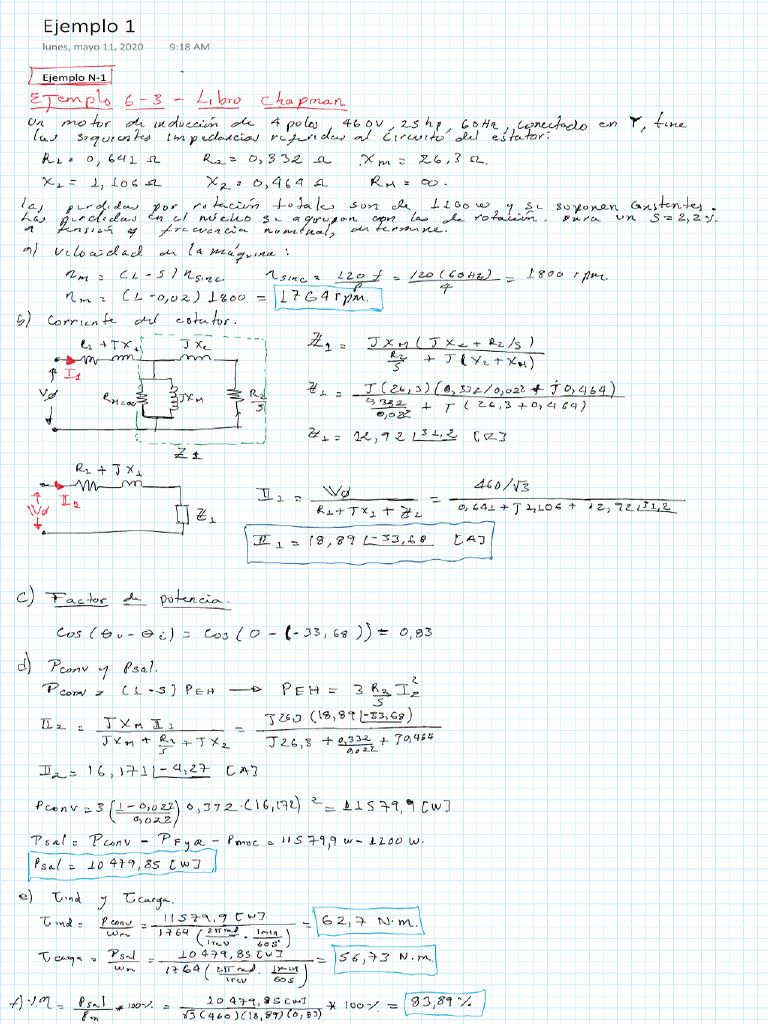 Ejemplo 1
lunes, mayo 11, 2020 9:18 AM
Ejemplo N-1
Ejemplo 6-3 - Libro Chapman
Un motor de inducción de 4 polos 460V, 25hp, 60Hz, conectado en Y, tine
las siguientes impedancias referidas al circuito del estator:
R1 = 0,641 Ω R2 = 0,332 Ω Xm = 26,3 Ω.
X1 = 1,106 Ω X2 = 0,464 Ω RM = ∞.
las perdidas por rotación totales son de 1100 w y se suponen constantes.
Las perdidas en el núcleo se agrupan con las de rotación. para un S = 2,2%.
a tensión y frecuencia nominal, determine.
a) Velocidad de la máquina:
nm = (1-S) nsinc nsinc = 120 f / P = 120(60Hz) / 4 = 1800 rpm.
nm = (1-0,02) 1800 = 1764 rpm.
b) Corriente del estator.
R1 + JX1 JX2
I1 Vø RM=∞ JXM R2/S
Z1
Z1 = JXM (JX2 + R2/S) / R2/S + J(X2 + XM)
Z1 = J(26,3)(0,332/0,022 + j0,464) / 0,332/0,022 + J(26,3+0,464)
Z1 = 12,92 ∠31,2 [Ω]
R1 + JX1
Vø I1 Z1
I1 = Vø / R1+JX1+Z1 = 460/√3 / 0,641+J1,106+12,92∠31,2
I1 = 18,89 ∠-33,68 [A]
c) Factor de potencia.
Cos(θv - θi) = Cos(0 - (-33,68)) = 0,83
d) Pconv y Psal.
Pconv = (1-S) PEH → PEH = 3 R2/S I2²
I2 = JXM I1 / JXM + R2/S + JX2 = J26,3 (18,89∠-33,68) / J26,3 + 0,332/0,022 + J0,464
I2 = 16,171 ∠-4,27 [A]
Pconv = 3 (1-0,022 / 0,022) 0,332·(16,172)² = 11579,9 [W]
Psal = Pconv - PFyR - Pmisc = 11579,9 w - 1100 w.
Psal = 10479,85 [W]
e) τind y τcarga.
τind = Pconv / ωm = 11579,9 [W] / 1764 (2π rad / 1rev · 1min / 60s) = 62,7 N·m.
τcarga = Psal / ωm = 10479,85 [W] / 1764 (2π rad / 1rev · 1min / 60s) = 56,73 N·m.
f) %η = Psal / Pin * 100% = 10479,85 [W] / √3 (460)(18,89)(0,83) * 100% = 83,89%